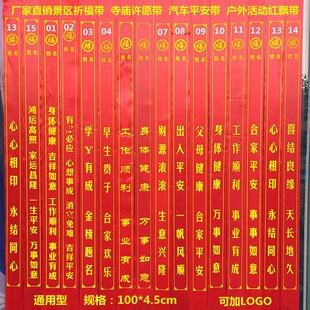 厂家直销景区祈福带 寺庙许愿带 汽车平安带 户外活动红飘带
13 福 姓名 心心相印 永结同心
15 福 姓名 鸿运高照 家运昌隆 一生平安 万事如意
01 福 姓名 身体健康 吉祥如意 工作顺利 事业有成
02 福 姓名 有求必应 心想事成 消灾免难 吉祥平安
03 福 姓名 学业有成 金榜题名
04 福 姓名 早生贵子 合家欢乐
05 福 姓名 工作顺利 事业有成
06 福 姓名 身体健康 万事如意
07 福 姓名 财源滚滚 生意兴隆
08 福 姓名 出入平安 一帆风顺
09 福 姓名 父母健康 合家平安
10 福 姓名 身体健康 万事如意
11 福 姓名 工作顺利 事业有成
12 福 姓名 合家平安 万事如意
13 福 姓名 心心相印 永结同心
14 福 姓名 喜结良缘 天长地久
通用型 规格:100*4.5cm 可加LOGO